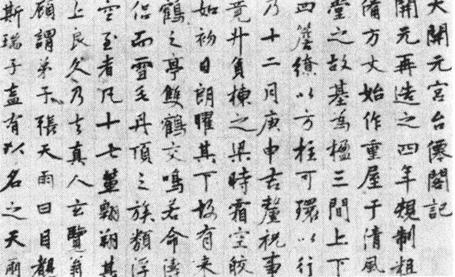 大開元宮台僊閣記
開元再造之四年規制粗
備方丈始作重屋于清風
堂之故基為楹三間上下
四簷繚以方柱可環以行
乃十二月庚申吉釐祝事
竟升負棟之梁時霜空皎
如初日朗曜其下故有来
鶴之亭雙鶴交鳴若命儔
侣而雪毛丹頂之族類浮
空至者凡十七輩翱翔其
上良久乃去真人玄覽翁
顧謂弟子張天雨曰目覩
斯瑞子盍有以名之天雨